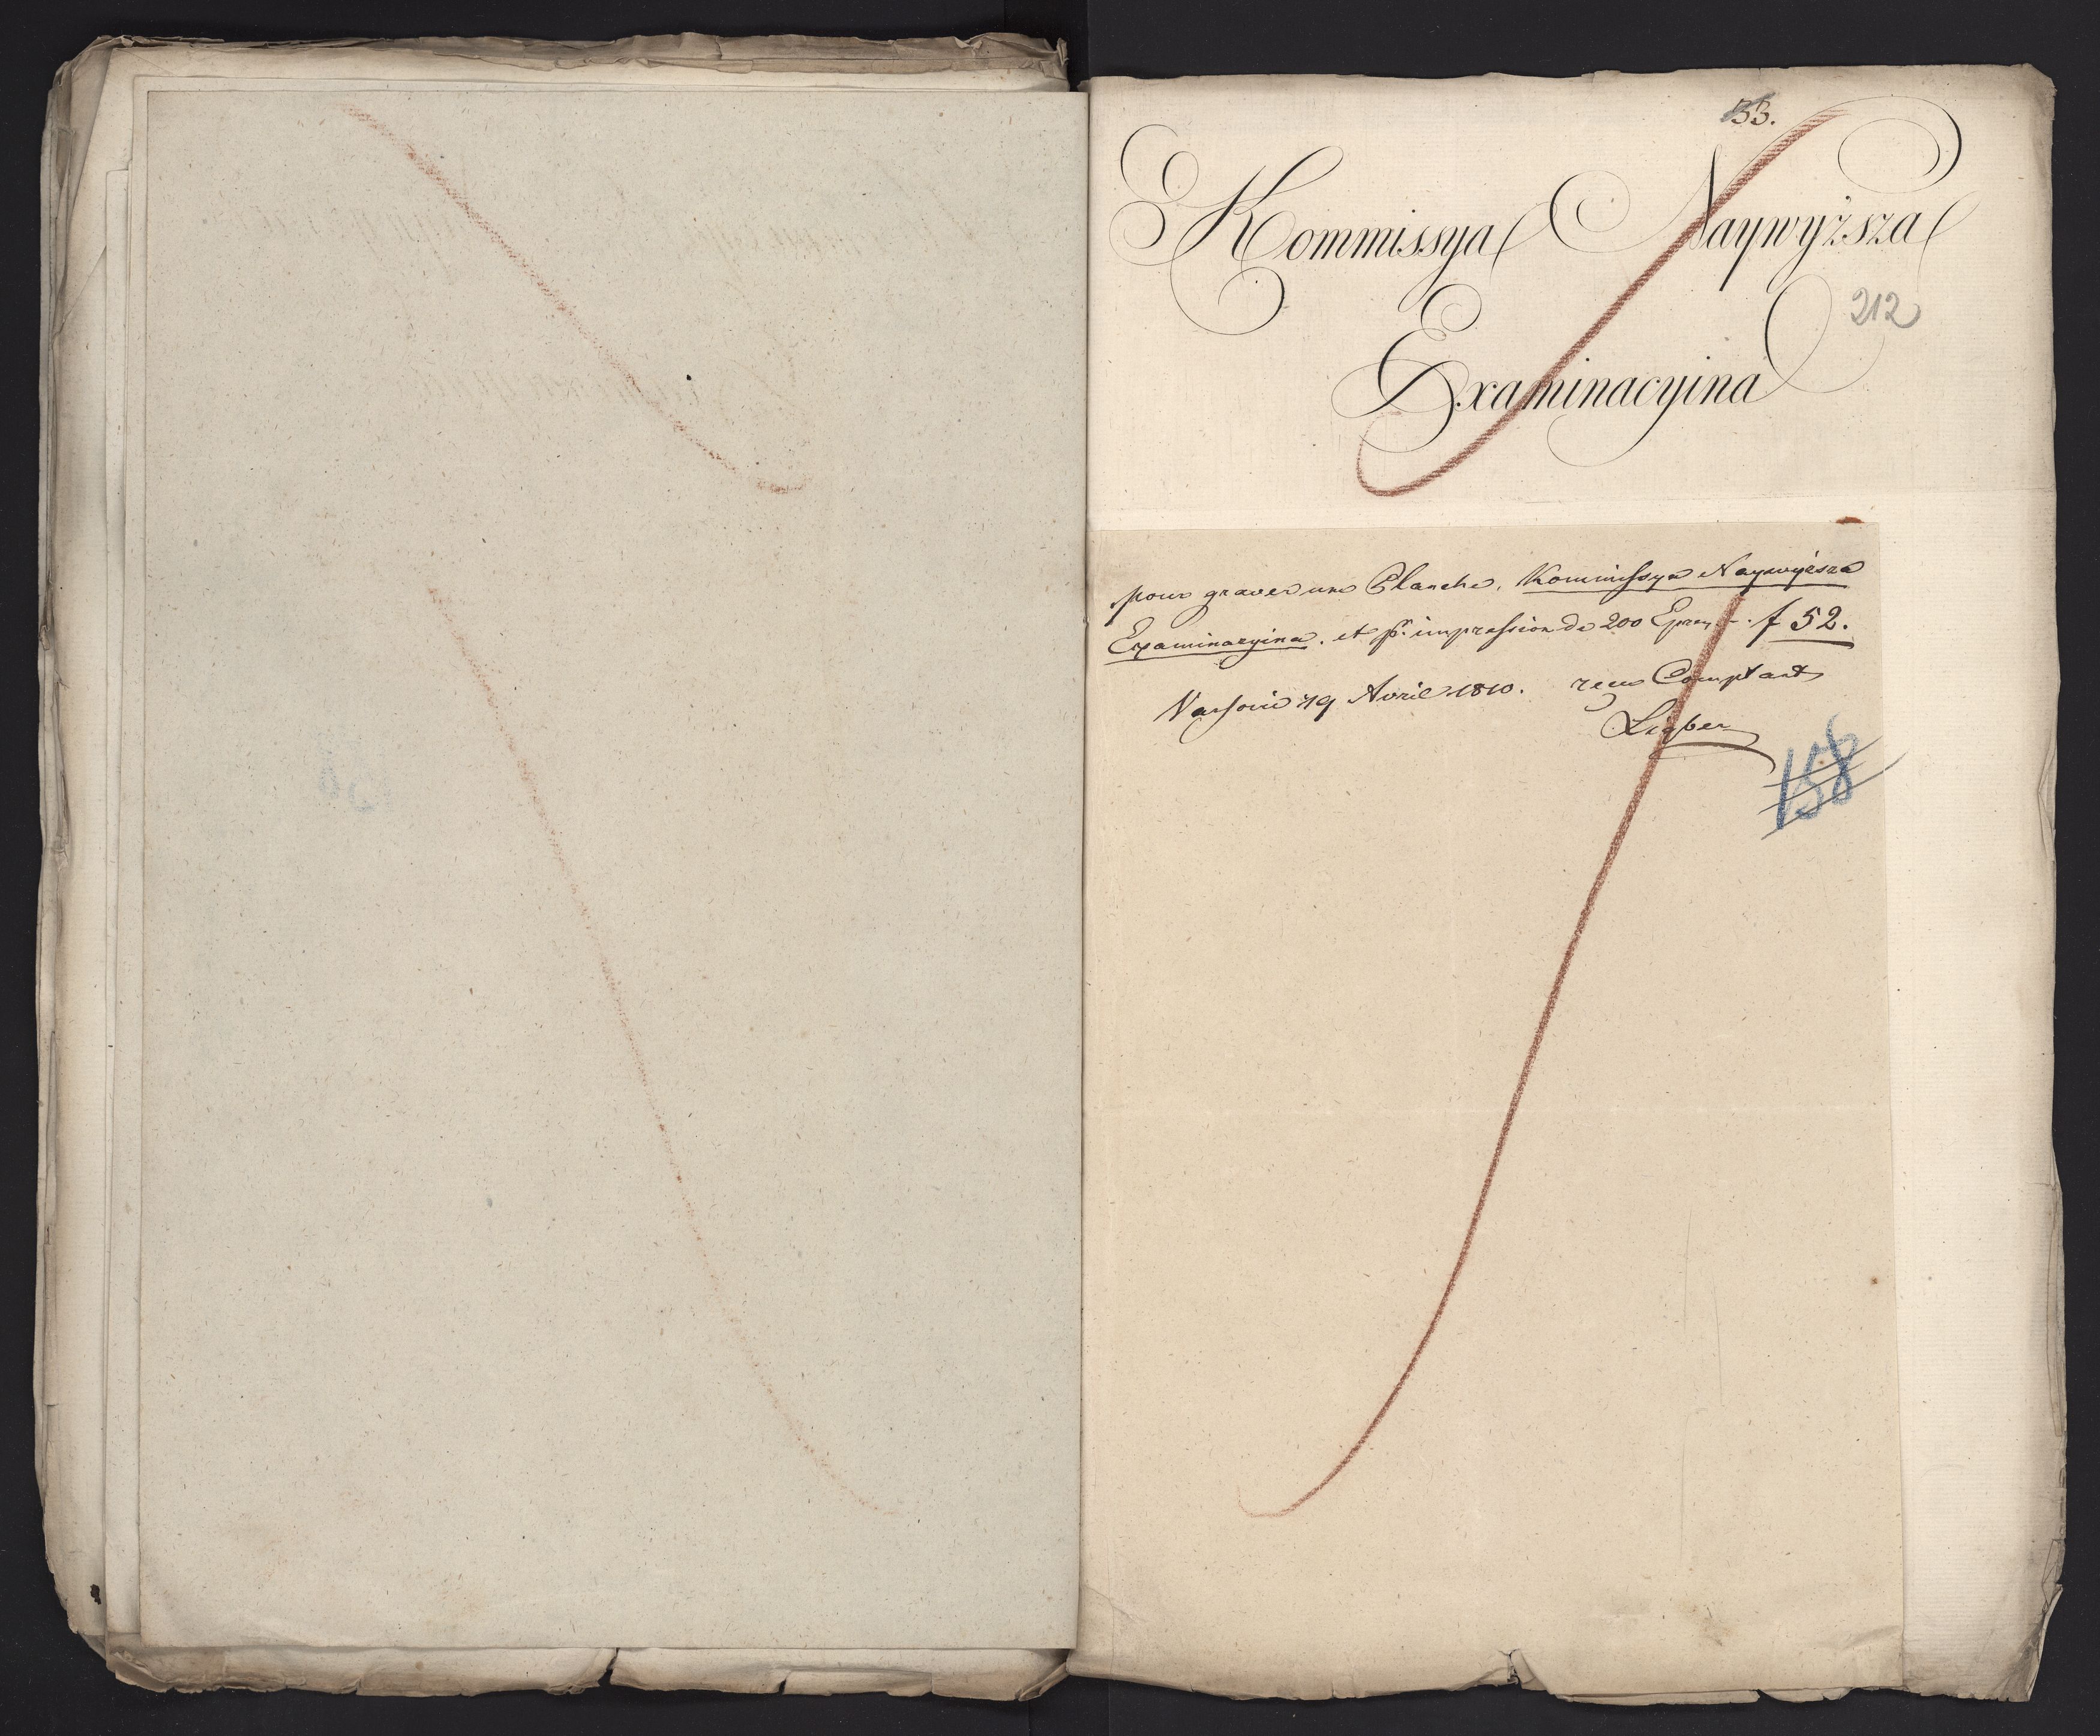 53.
Kommissya Naywyższa
212
Examinacyina
pour graver une Planche, Kommissya Naywyésza
Examinacyina. et pr. impression de 200 Epreuv. f 52.
Varsovie 19 Avril 1810. recu Comptant
Ligber
158